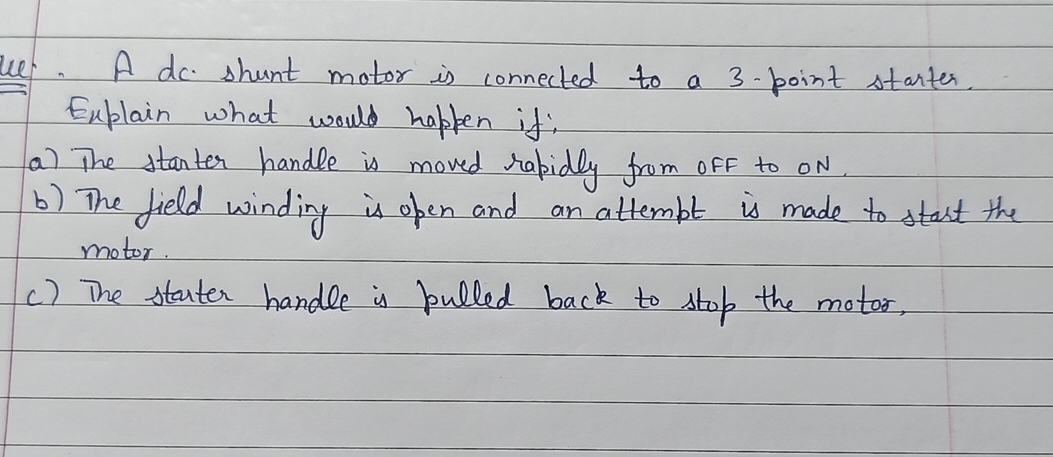 A dc. shunt motor is connected to a 3-point starter.
Explain what would happen if:
a) The starter handle is moved rapidly from OFF to ON.
b) The field winding is open and an attempt is made to start the
motor.
c) The starter handle is pulled back to stop the motor.